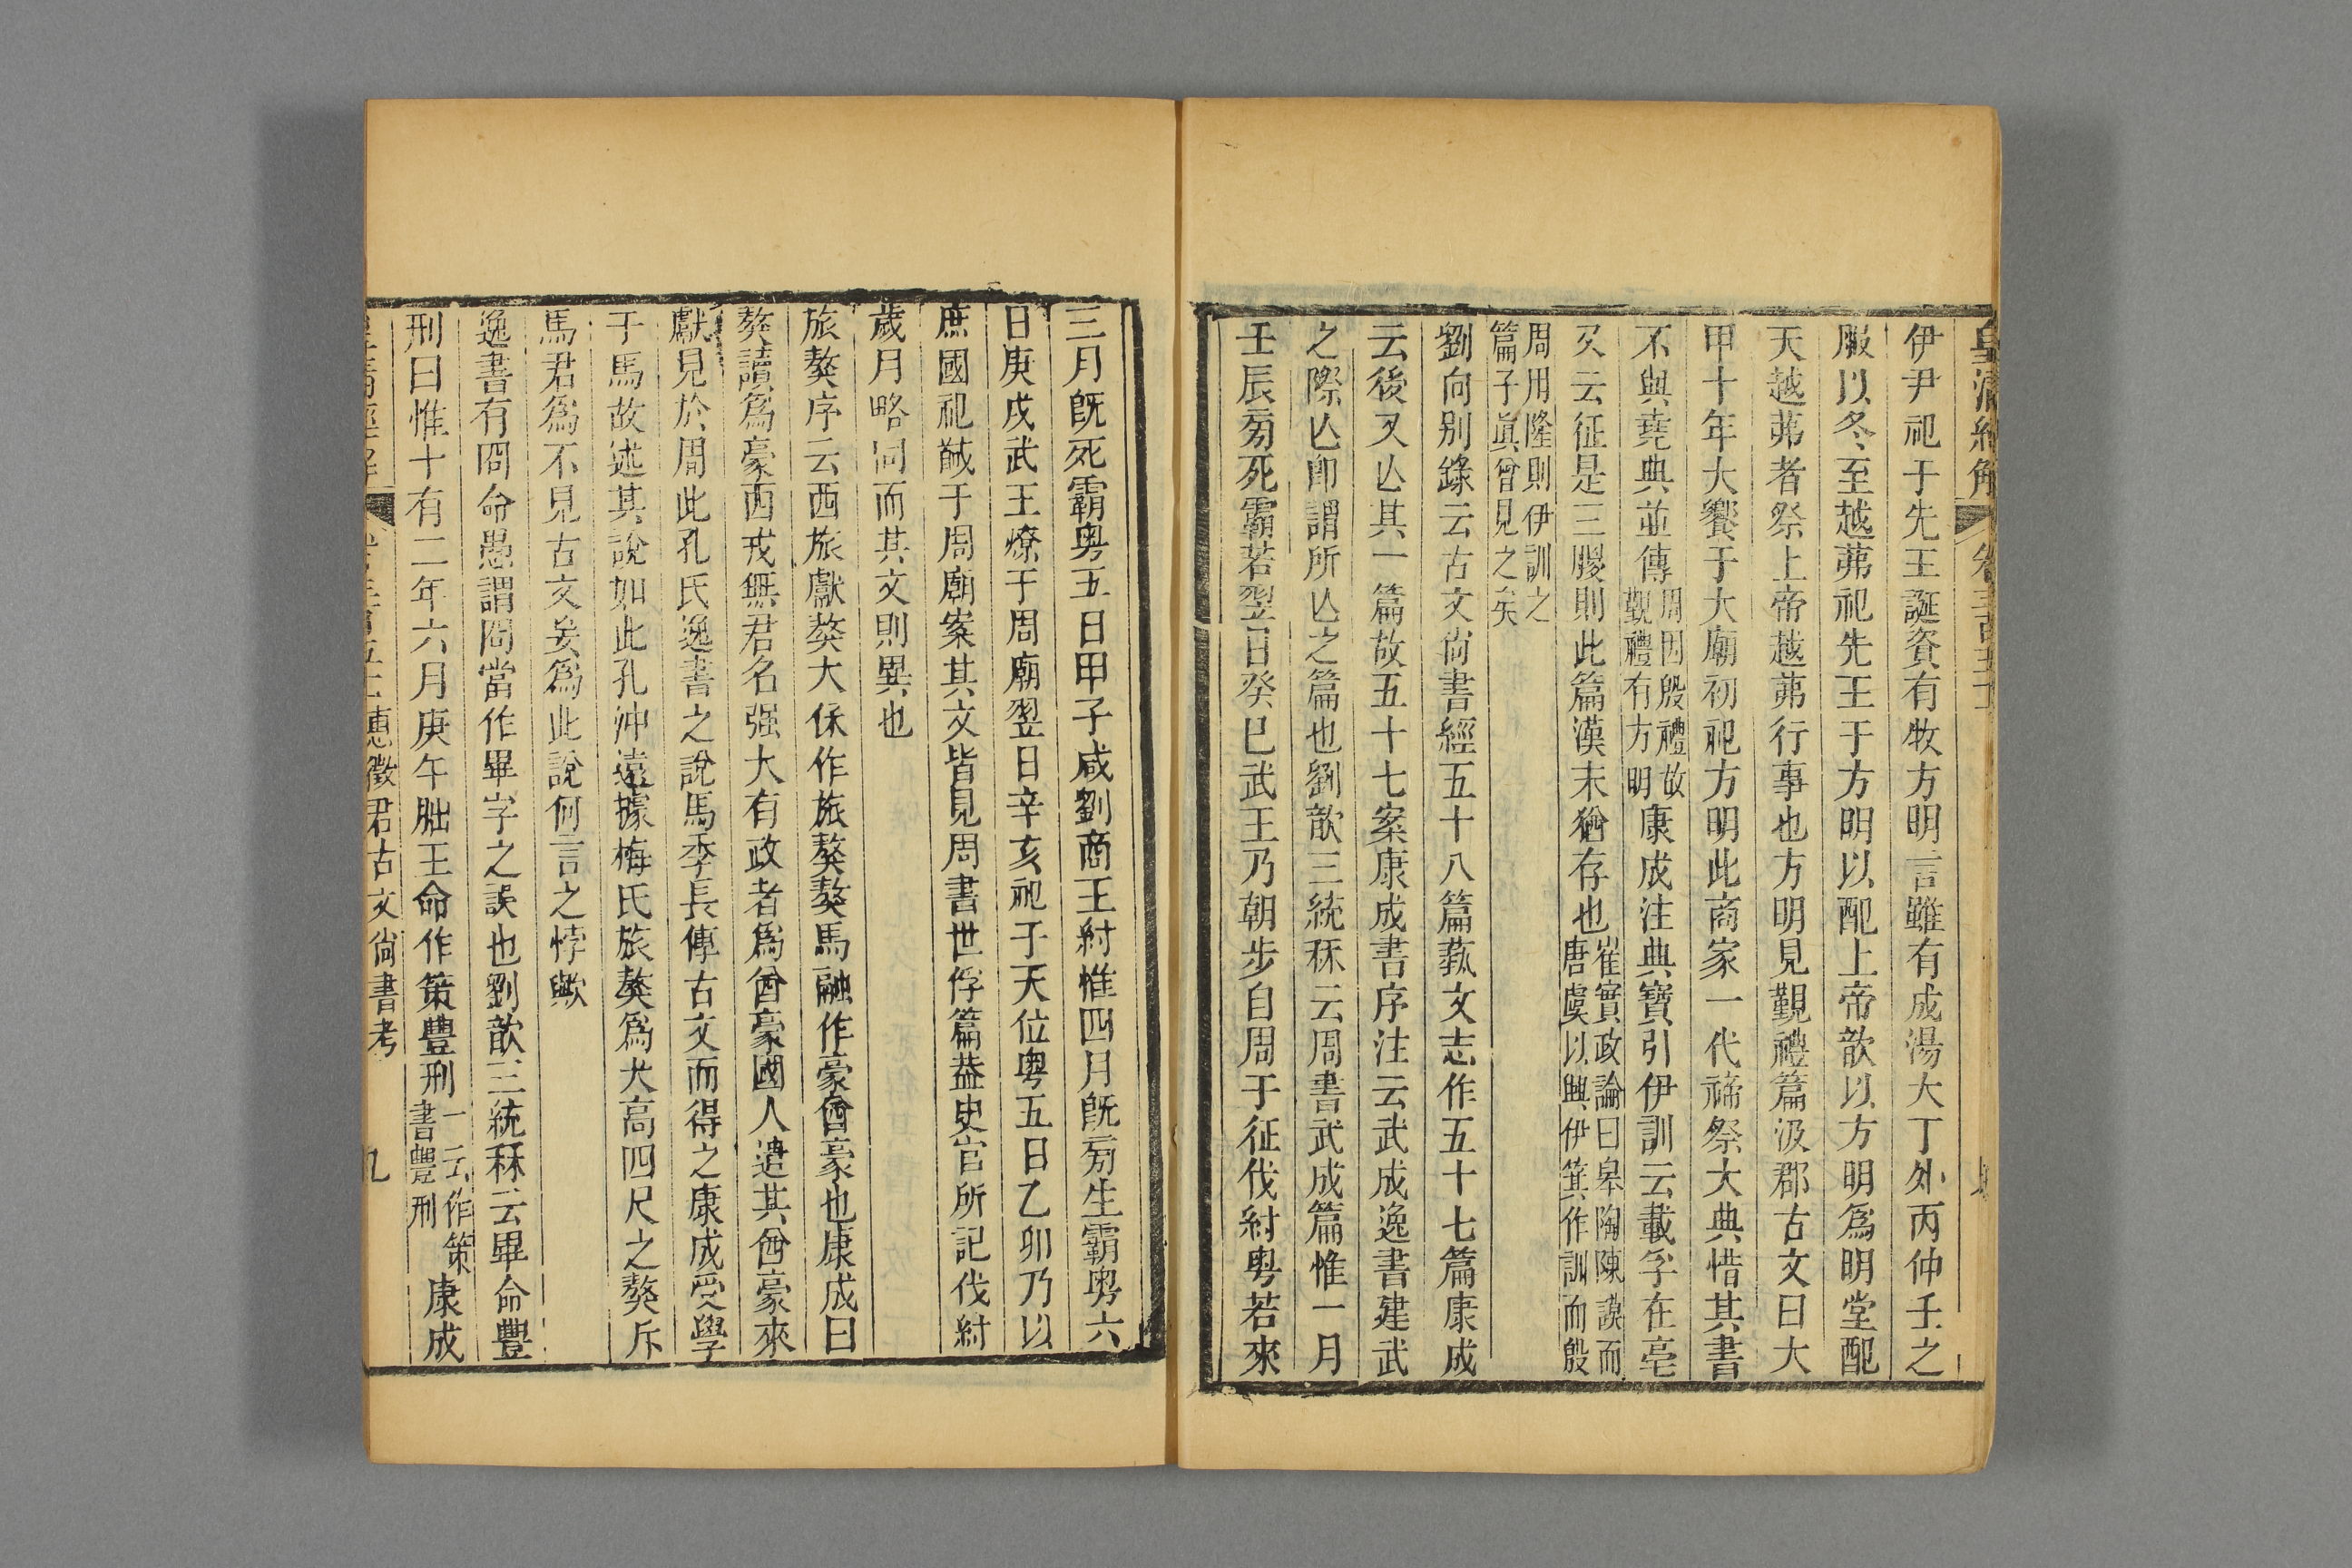 皇清經解 卷三百五十一
伊尹祀于先王誕資有牧方明言雖有成湯大丁外丙仲壬之
服以冬至越茀祀先王于方明以配上帝歆以方明爲明堂配
天越茀者祭上帝越茀行事也方明見覲禮篇汲郡古文曰大
甲十年大饗于大廟初祀方明此商家一代禘祭大典惜其書
不與堯典並傳周因殷禮故覲禮有方明康成注典寶引伊訓云載孚在亳
又云征是三朡則此篇漢末猶存也崔實政論曰皋陶陳謨而唐虞以興伊箕作訓而殷
周用隆則伊訓之篇子眞曾見之矣
劉向别錄云古文尙書經五十八篇蓺文志作五十七篇康成
云後又亾其一篇故五十七案康成書序注云武成逸書建武
之際亾卽謂所亾之篇也劉歆三統秝云周書武成篇惟一月
壬辰㫄死霸若翌日癸巳武王乃朝步自周于征伐紂粤若來
三月旣死霸粤五日甲子咸劉商王紂惟四月旣㫄生霸粤六
日庚戌武王燎于周廟翌日辛亥祀于天位粤五日乙卯乃以
庶國祀馘于周廟案其文皆見周書世俘篇葢史官所記伐紂
歲月略同而其文則異也
旅獒序云西旅獻獒大保作旅獒獒馬融作豪酋豪也康成曰
獒讀爲豪西戎無君名强大有政者爲酋豪國人遣其酋豪來
獻見於周此孔氏逸書之說馬季長傳古文而得之康成受學
于馬故述其說如此孔沖遠據梅氏旅獒爲犬高四尺之獒斥
馬君爲不見古文妄爲此說何言之悖歟
逸書有冏命愚謂冏當作畢字之誤也劉歆三統秝云畢命豐
刑曰惟十有二年六月庚午朏王命作策豐刑一云作策書豐刑康成
惠徵君古文尙書考 九